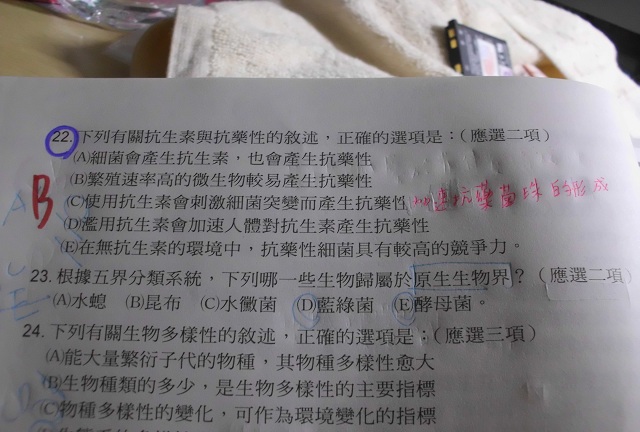 22. 下列有關抗生素與抗藥性的敘述，正確的選項是：(應選二項)
(A)細菌會產生抗生素，也會產生抗藥性
(B)繁殖速率高的微生物較易產生抗藥性
B
(C)使用抗生素會刺激細菌突變而產生抗藥性 加速抗藥菌株的形成
(D)濫用抗生素會加速人體對抗生素產生抗藥性
(E)在無抗生素的環境中，抗藥性細菌具有較高的競爭力。
23. 根據五界分類系統，下列哪一些生物歸屬於原生生物界？(應選二項)
(A)水螅 (B)昆布 (C)水黴菌 (D)藍綠菌 (E)酵母菌。
24. 下列有關生物多樣性的敘述，正確的選項是：(應選三項)
(A)能大量繁衍子代的物種，其物種多樣性愈大
(B)生物種類的多少，是生物多樣性的主要指標
(C)物種多樣性的變化，可作為環境變化的指標